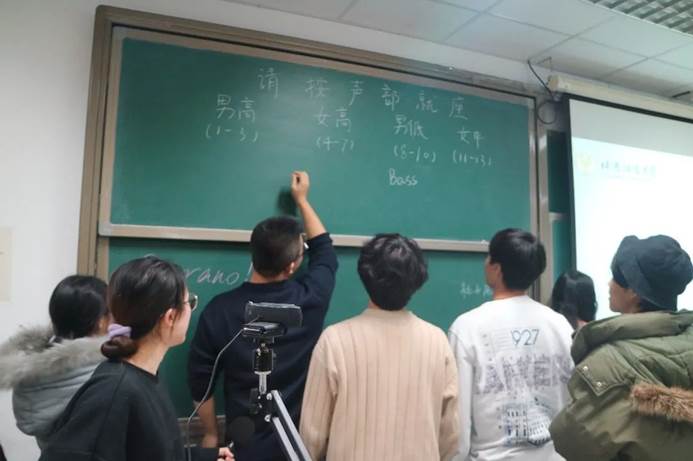 请按声部就座
男高 女高 男低 女中
(1-3) (4-7) (8-10) (11-13)
Bass
rano!
927